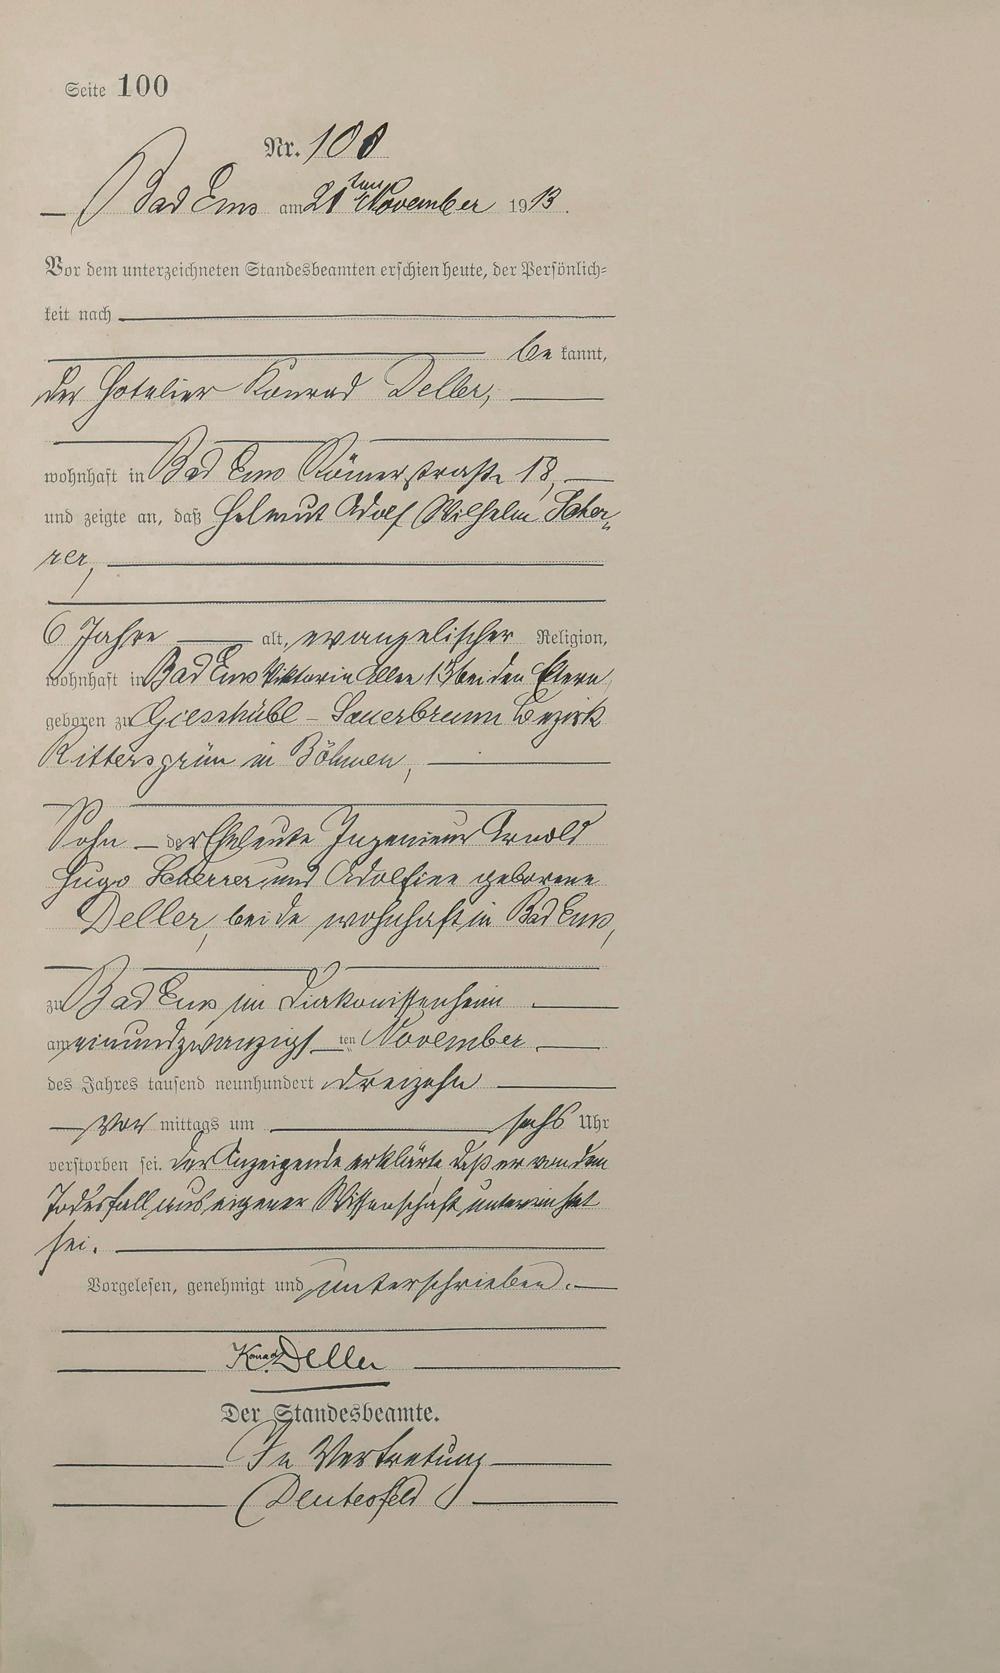 Seite 100
Nr. 100
Bad Ems am 21ten November 1913.
Vor dem unterzeichneten Standesbeamten erschien heute, der Persönlich-
keit nach
be kannt,
der Hotelier Konrad Deller,
wohnhaft in Bad Ems Römerstraße 18,
und zeigte an, daß Helmut Adolf Wilhelm Scher-
rer,
6 Jahre alt, evangelischer Religion,
wohnhaft in Bad Ems Viktoria Allee 15 bei den Eltern
geboren zu Giesshübl - Sauerbrunn Bezirk
Rittersgrün in Böhmen,
Sohn der Eheleute Ingenieur Arnold
Hugo Scherrer und Adolfine geborene
Deller, beide wohnhaft in Bad Ems,
zu Bad Ems im Diakonissenheim
am einundzwanzigsten November
des Jahres tausend neunhundert dreizehn
Vor mittags um sechs Uhr
verstorben sei. Der Anzeigende erklärte daß er von dem
Todesfall aus eigener Wissenschaft unterrichtet
sei.
Vorgelesen, genehmigt und unterschrieben.
Konrad Deller
Der Standesbeamte.
In Vertretung